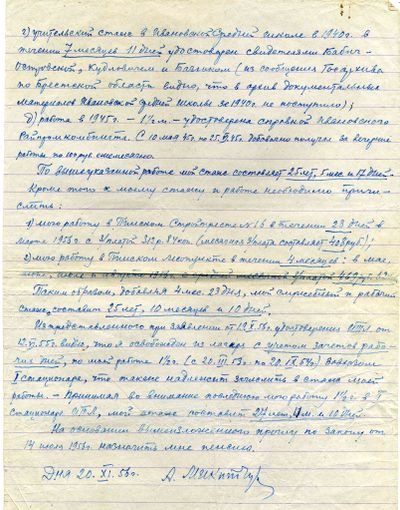 г) учительский стаж в Ивановской Средней школе в 1940г. в
течении 7 месяцев 11 дней удостоверен свидетелями Бабич-
Островской, Кудловичем и (из сообщения Госархива
по Брестской области видно, что в архив документальных
материалов Ивановской Средней школы за 1940г. не поступило);
д) работа в 1945г. – 1½ м. – удостоверена справкой Ивановского
Райпромкомбината. (С 10 мая 45г. по 25 45г. добавочно получал за вечерние
работы по ежемесячно.
По вышеуказанной работе мой стаж составляет 25 лет, 5 мес. и 17 дней.
Кроме этого к моему стажу и работе необходимо причи-
слить:
1) мою работу в Пинском Стройтресте № 16 в течении 23 дней в
марте 1956г. с 312 р. 84 коп. (месячная составляет 408 руб.);
2) мою работу в Пинском в течении 4 месяцев: в мае,
июле и августе
Таким образом, добавляя 4 мес. 23 дня, мой служебный и рабочий
стаж составит 25 лет, 10 месяцев и 10 дней.
Из представленного при заявлении от 19.X.56г. удостоверения
12.XI.55г. видно, что я освобождён из лагеря с учётом зачётов рабо-
чих дней, по моей работе 1½ г. (с 20.III.53г. по 20.IX.54г.)
стационара, что также надлежит зачислить в стаж моей
работы. – Принимая во внимание последнего мою работу 1½ г. в
стационаре мой стаж составит 27 лет, 4 м. и 10 дней.
На основании вышеизложенного прошу по закону от
14 июля 1956г. назначить мне пенсию.
Дня 20.XI.56г. А.